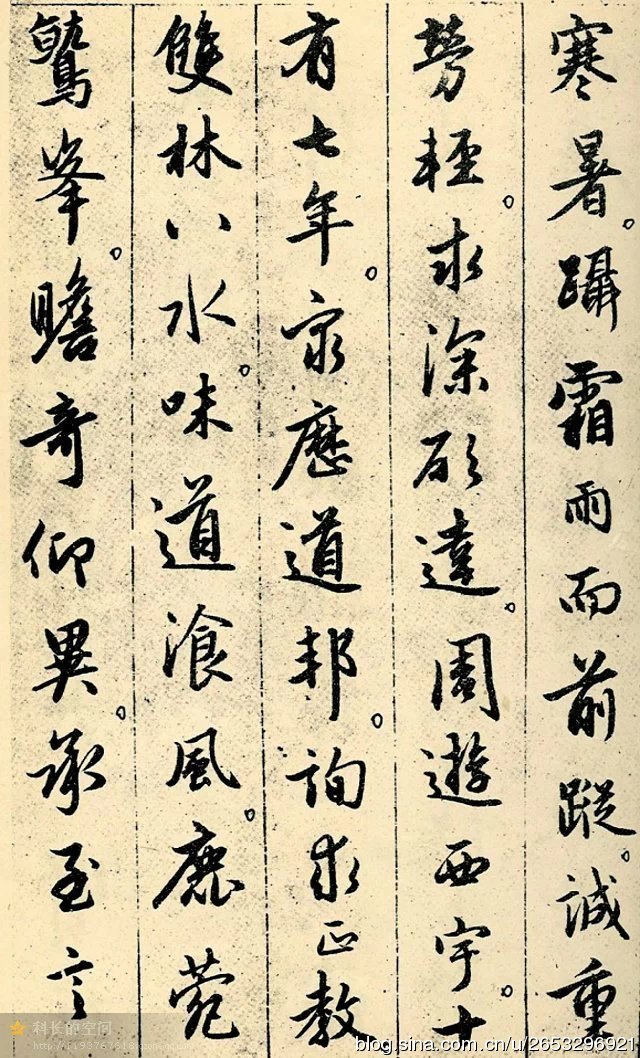 寒暑。躡霜雨而前蹤。誠重
勞輕。求深願達。周遊西宇。十
有七年。窮歷道邦。詢求正教
雙林八水。味道飡風。鹿菀
鷲峯。瞻奇仰異。承至言
科长的空间
blog.sina.com.cn/u/2653296921